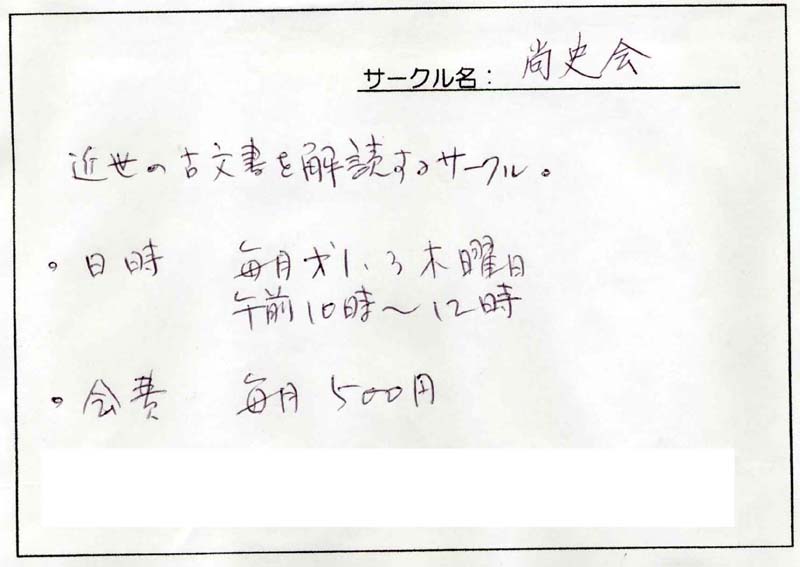 サークル名： 尚史会
近世の古文書を解読するサークル。
。日時 毎月才1、3木曜日
午前10時～12時
。会費 毎月500円